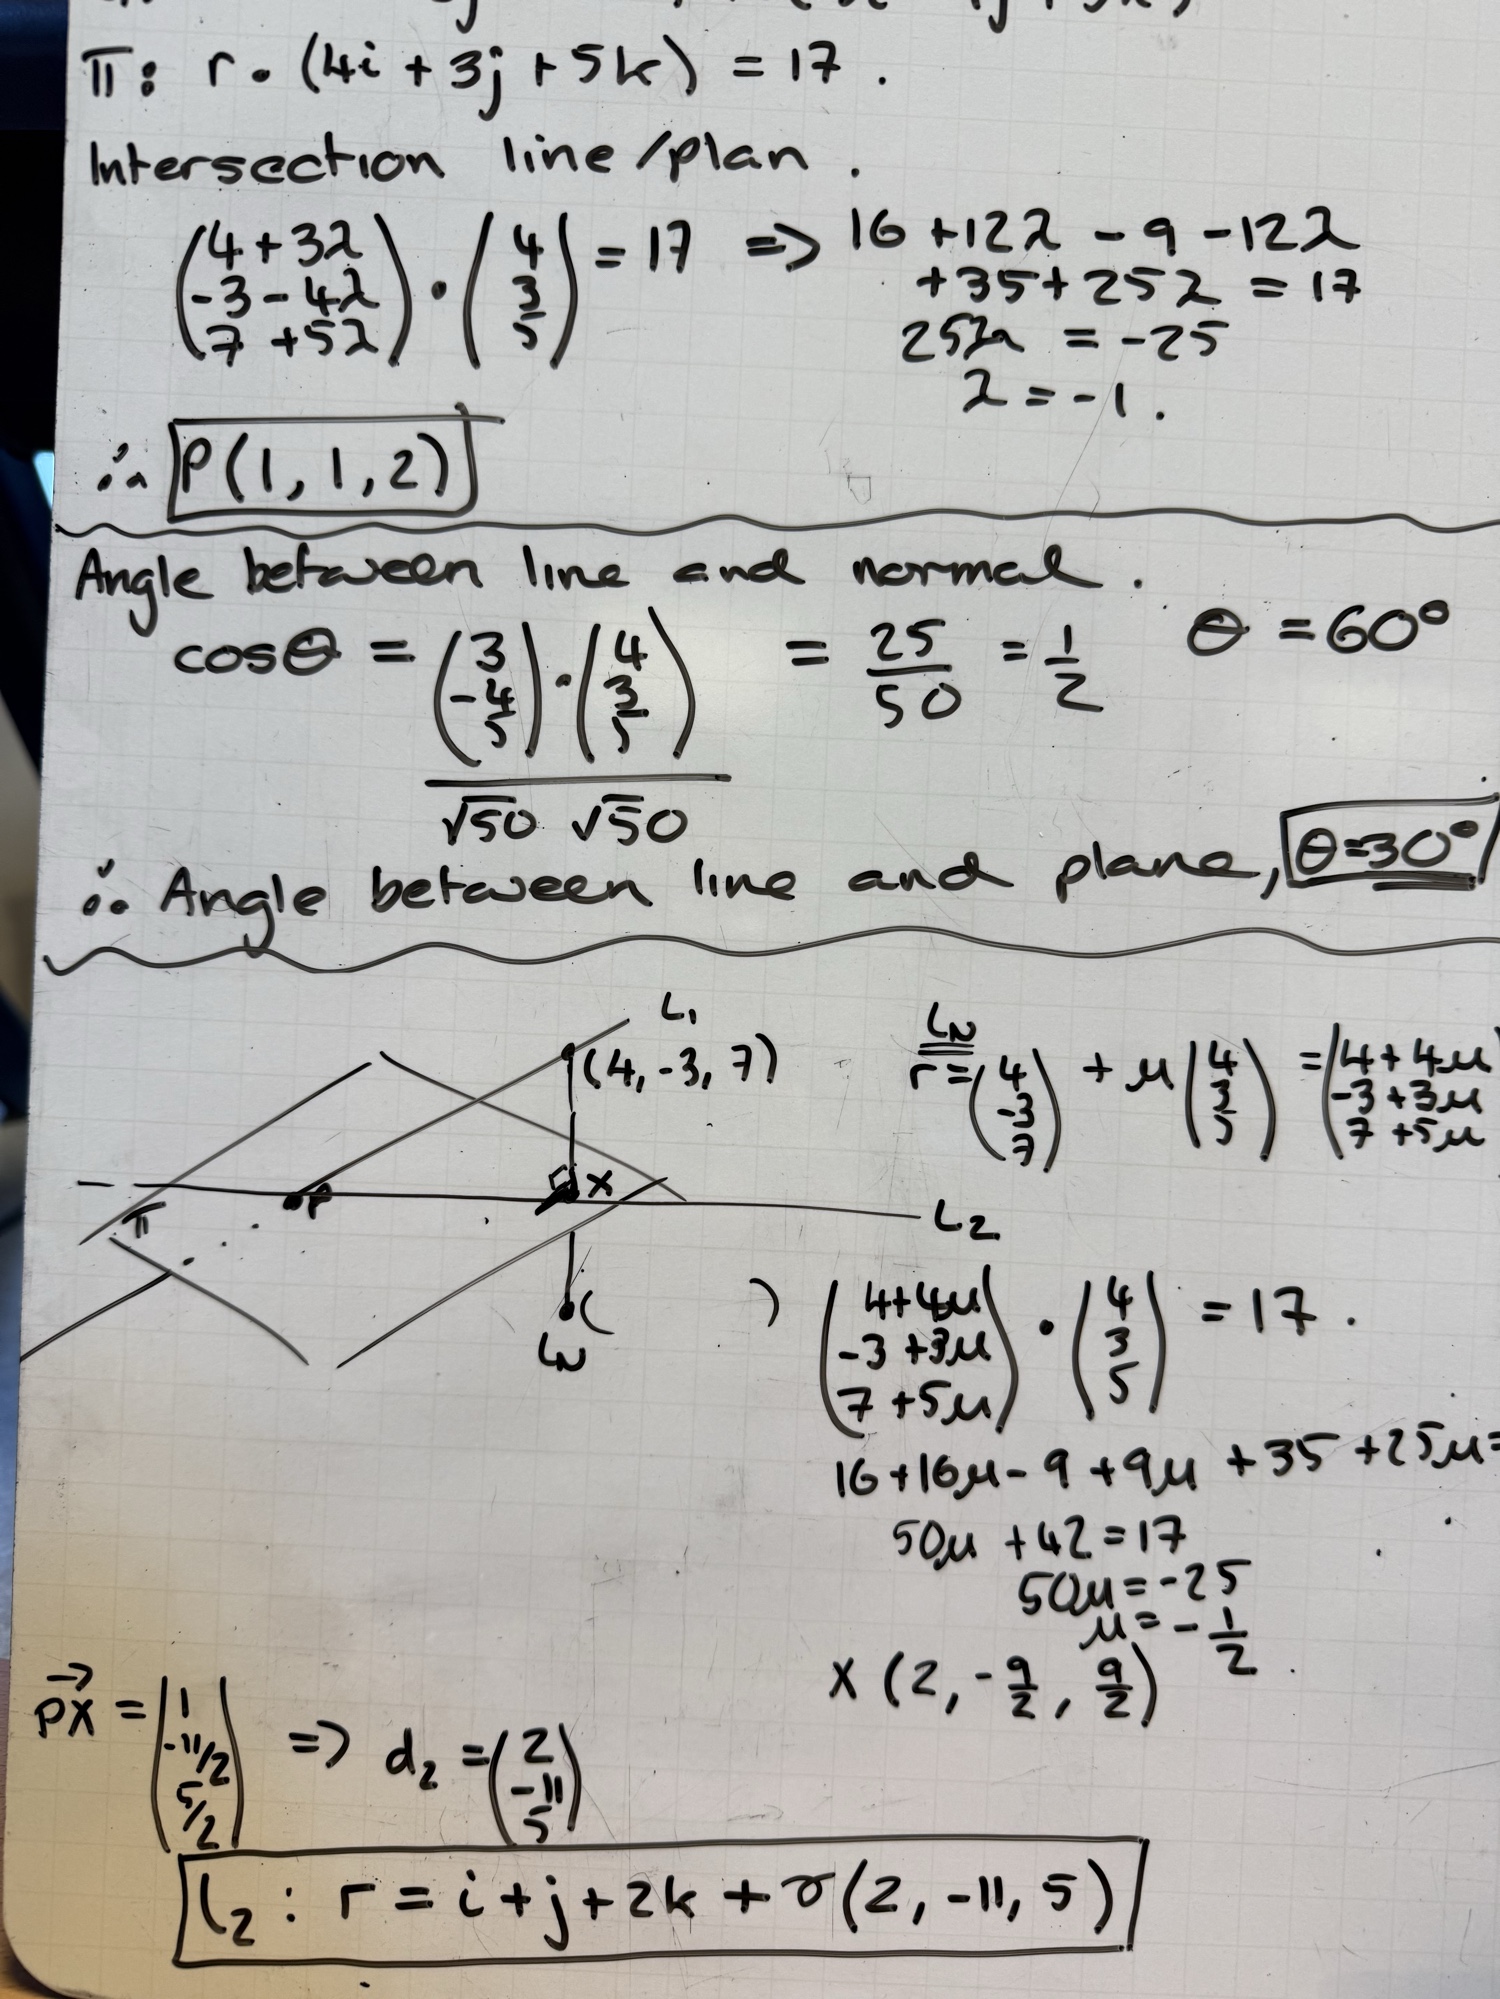 π: r. (4i + 3j + 5k) = 17 .
Intersection line/plan .
(4+3λ, -3-4λ, 7+5λ) · (4, 3, 5) = 17 => 16 +12λ - 9 -12λ
+35+25λ = 17
25λ = -25
λ = -1 .
∴ P(1, 1, 2)
Angle between line and normal .
cosθ = (3, -4, 5) · (4, 3, 5) / √50 √50 = 25/50 = 1/2 θ = 60°
∴ Angle between line and plane, θ=30°
L₁
(4, -3, 7)
X
P
π
L₂
(
LN
LN
r = (4, -3, 7) + μ (4, 3, 5) = (4+4μ, -3+3μ, 7+5μ
) (4+4μ, -3+3μ, 7+5μ) · (4, 3, 5) = 17 .
16+16μ - 9 +9μ +35 +25μ=
50μ +42 = 17
50μ = -25
μ = -1/2
X (2, -9/2, 9/2) .
PX→ = (1, -11/2, 5/2) => d₂ = (2, -11, 5)
L₂ : r = i + j + 2k + γ(2, -11, 5)